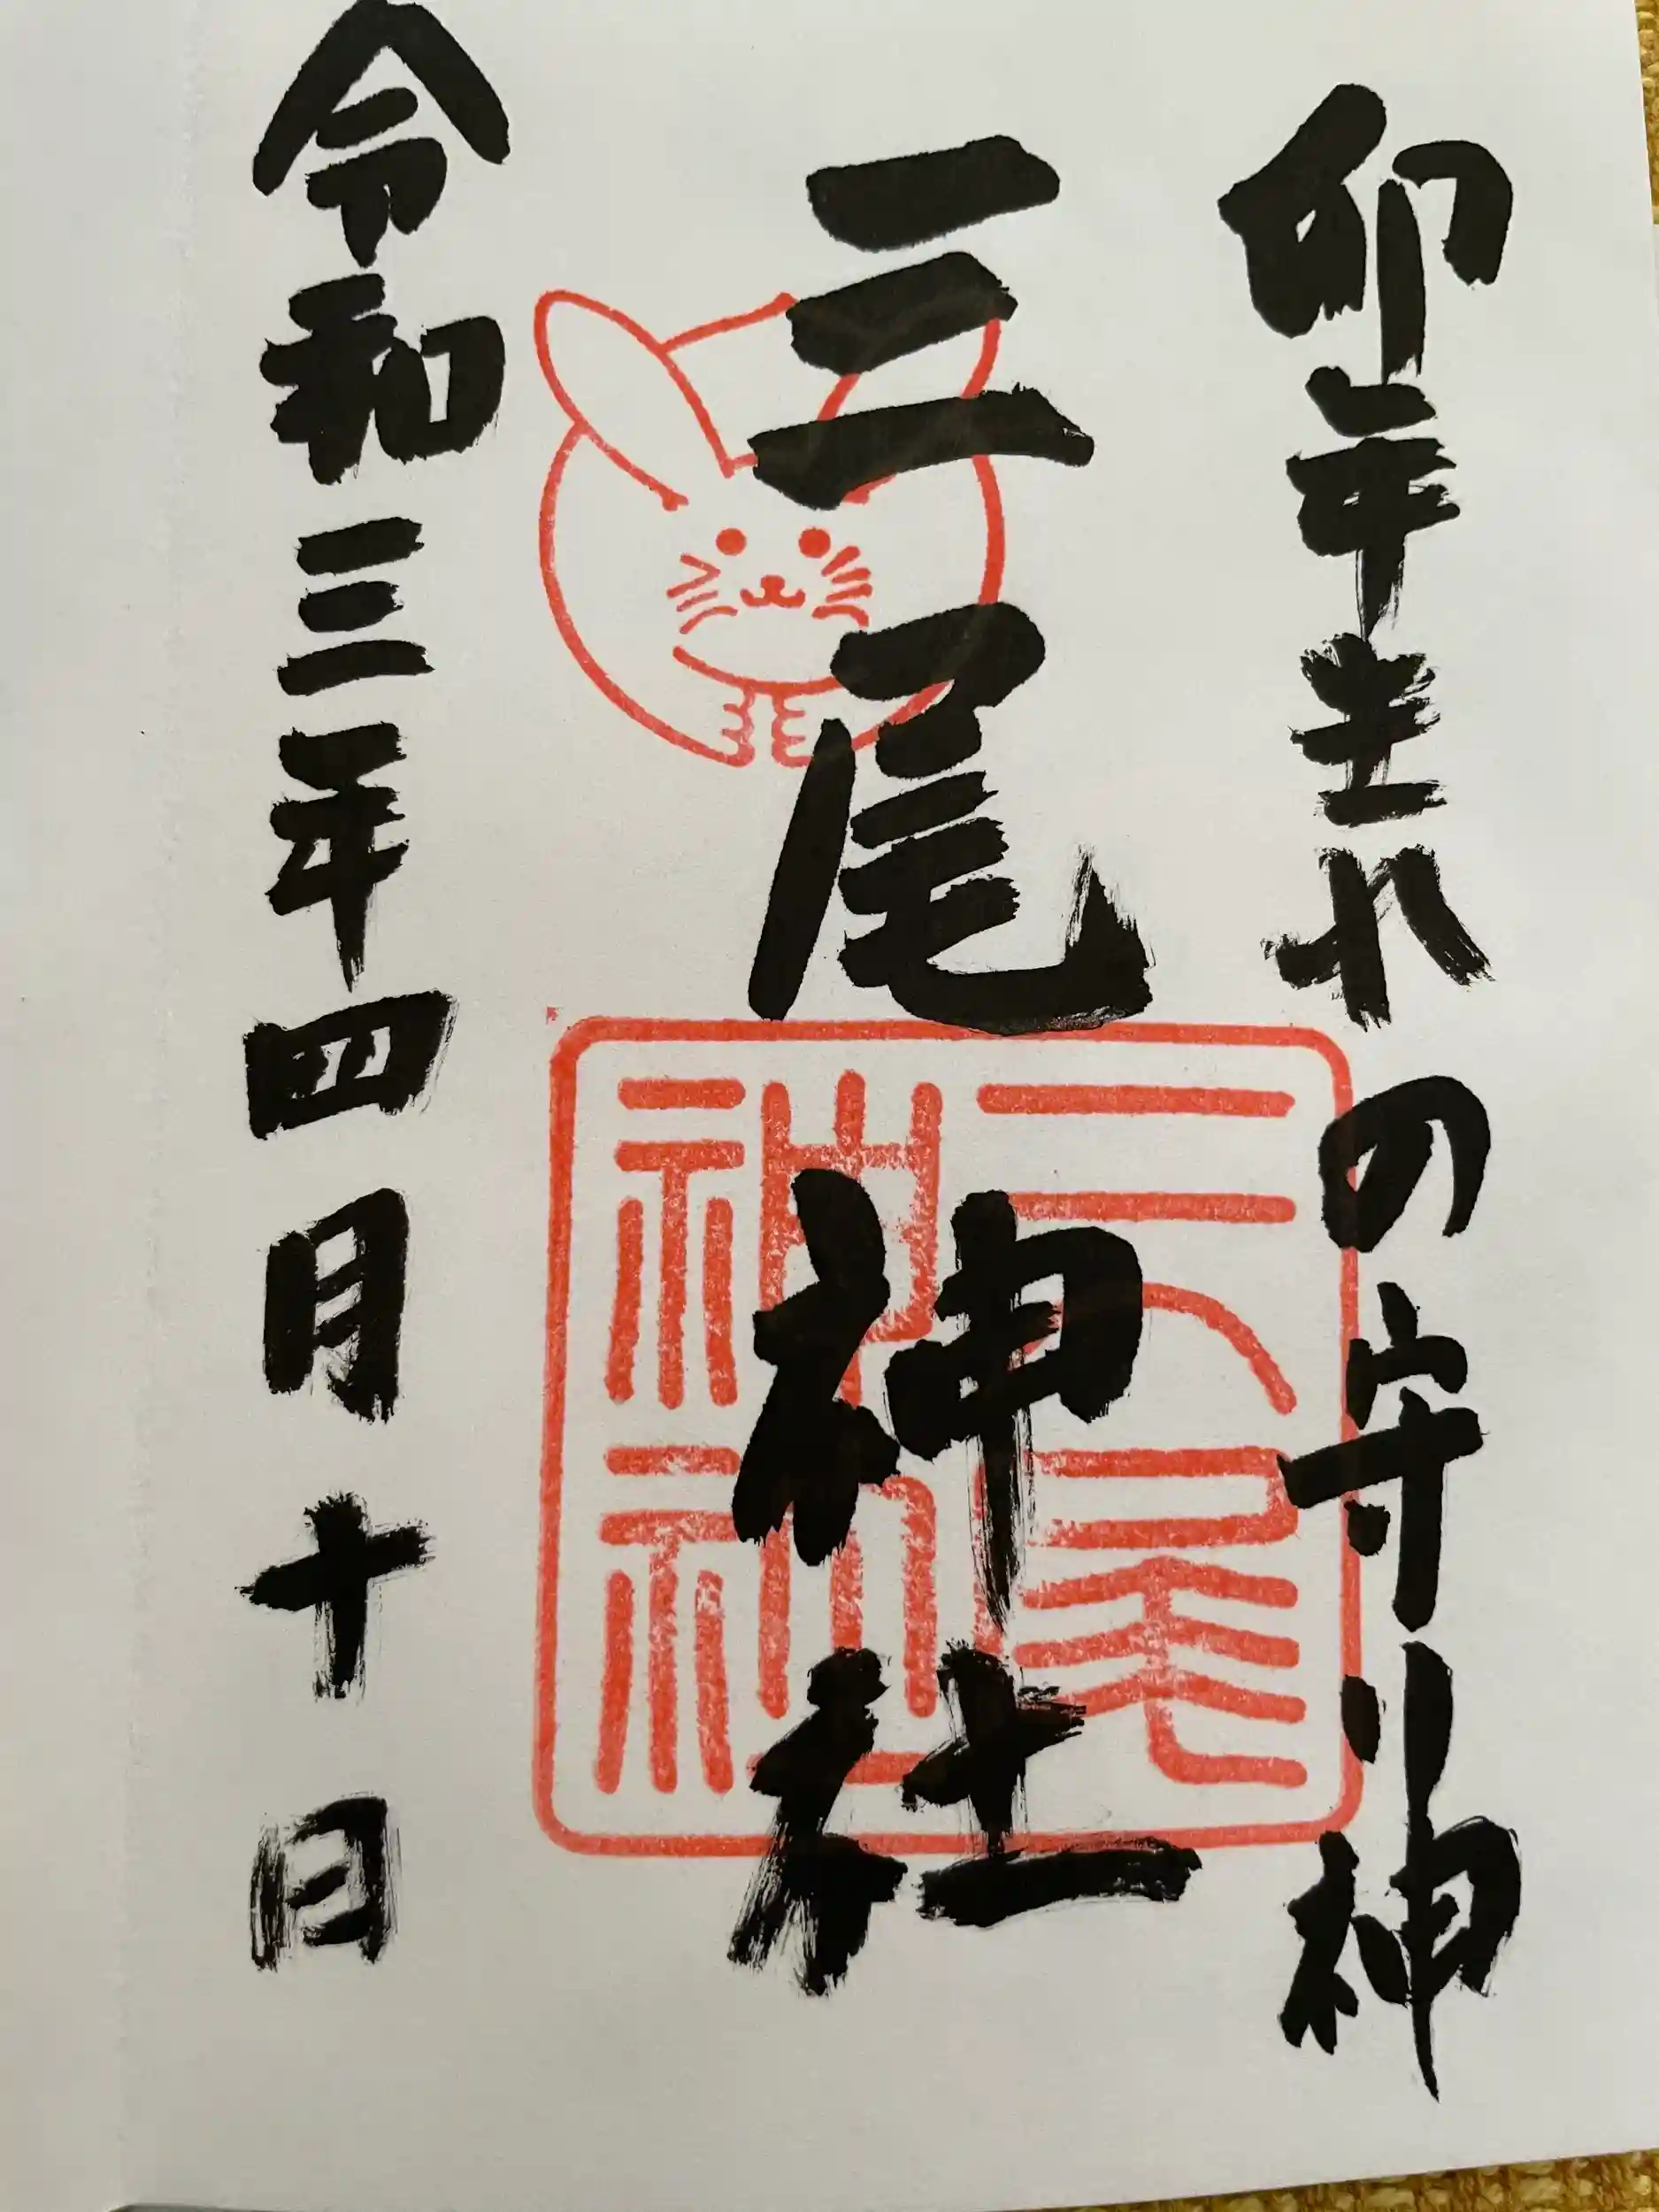 卯年生れの守り神
三尾神社
三尾
神社
令和三年四月十日